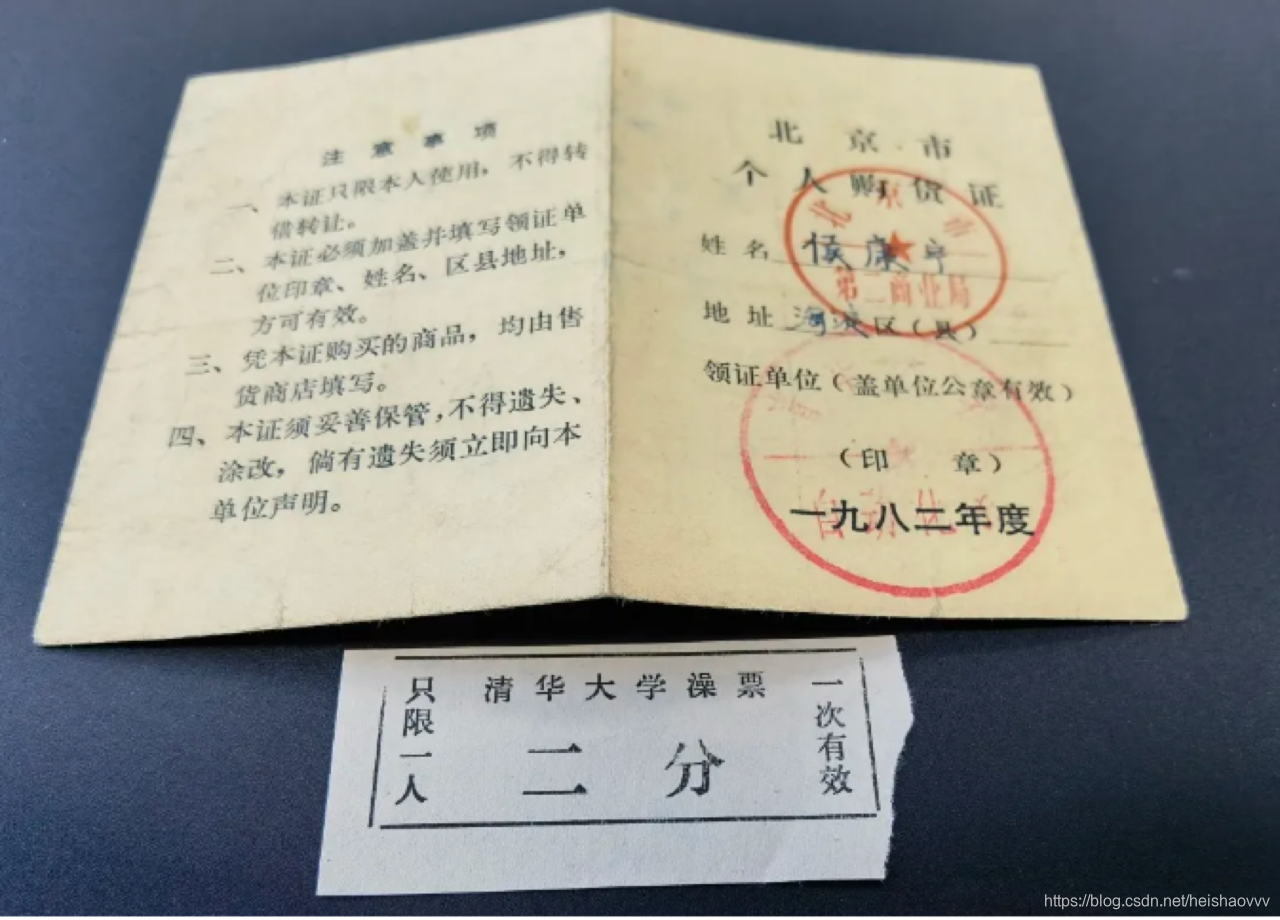 注意事项
一、本证只限本人使用，不得转
借转让。
二、本证必须加盖并填写领证单
位印章、姓名、区县地址，
方可有效。
三、凭本证购买的商品，均由售
货商店填写。
四、本证须妥善保管，不得遗失、
涂改，倘有遗失须立即向本
单位声明。
北京市
个人购货证
姓名 侯康宁
地址 海淀区（县）
领证单位（盖单位公章有效）
（印 章）
一九八二年度
北京市
第二商业局
只限一人
清华大学澡票
二分
一次有效
https://blog.csdn.net/heishaovvv